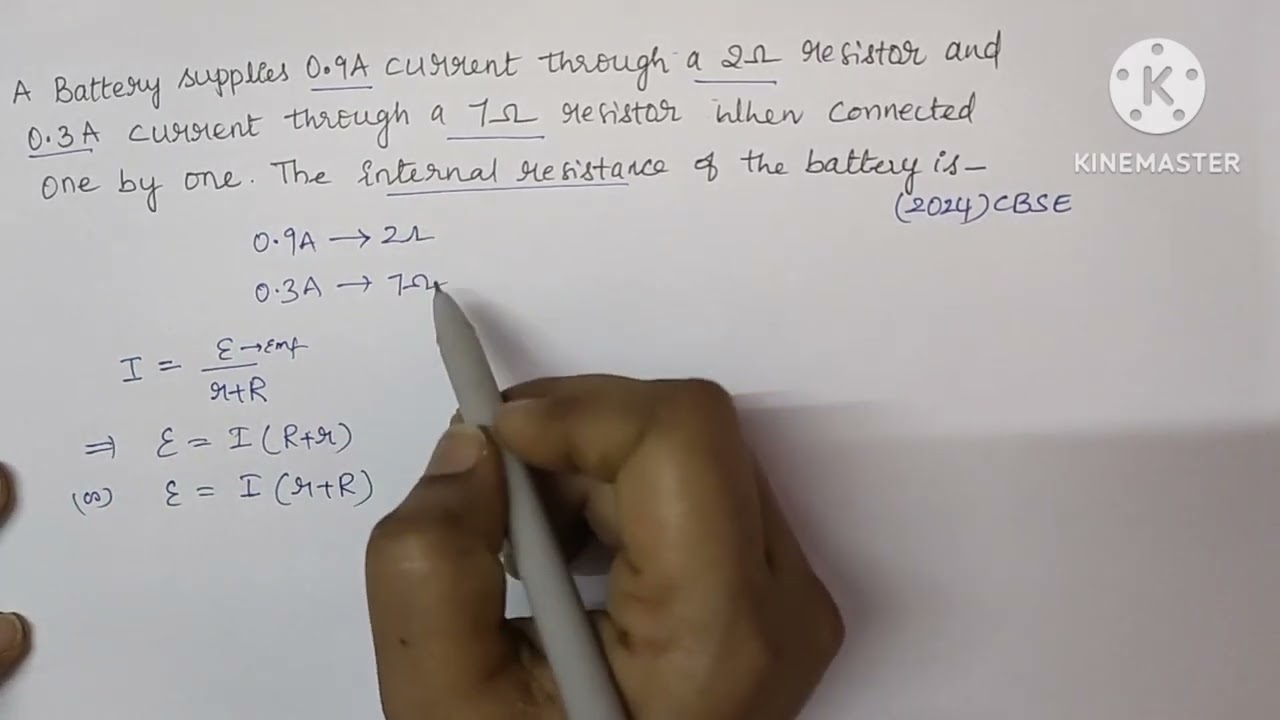 A Battery supplies 0.9A current through a 2Ω resistor and
0.3A current through a 7Ω resistor when connected
one by one. The internal resistance of the battery is-
(2024) CBSE
0.9A → 2Ω
0.3A → 7Ω
I = ε→Emf / r+R
⇒ ε = I (R+r)
(or) ε = I (r+R)
K
KINEMASTER